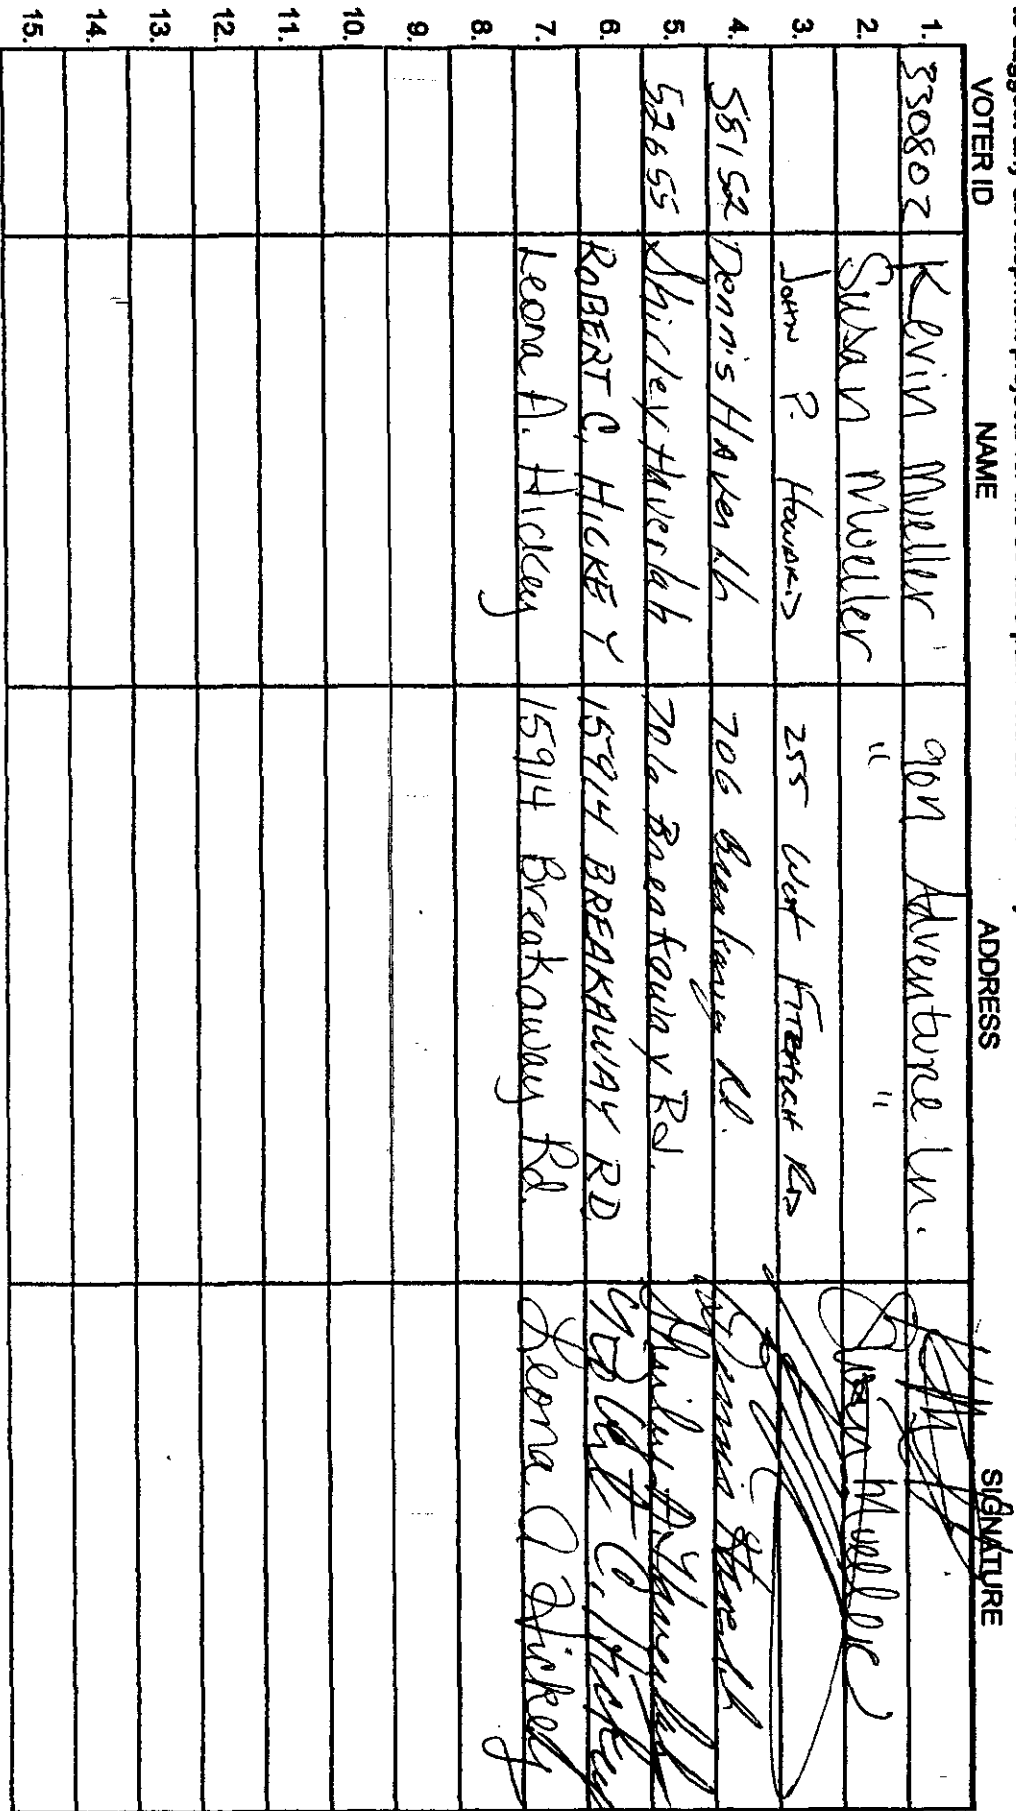 VOTER ID NAME ADDRESS SIGNATURE
1. 330802 Kevin Mueller 901 Adventure Ln.
2. Susan Mueller " " Susan Mueller
3. JOHN P. HOWARD 255 West RD
4. 58152 Dennis Haverlah 706 Breakaway Rd. Dennis Haverlah
5. 52655 Shirley Haverlah 706 Breakaway Rd. Shirley A. Haverlah
6. ROBERT C. HICKEY 15914 BREAKAWAY RD Robert C. Hickey
7. Leona A. Hickey 15914 Breakaway Rd. Leona A Hickey
8.
9.
10.
11.
12.
13.
14.
15.